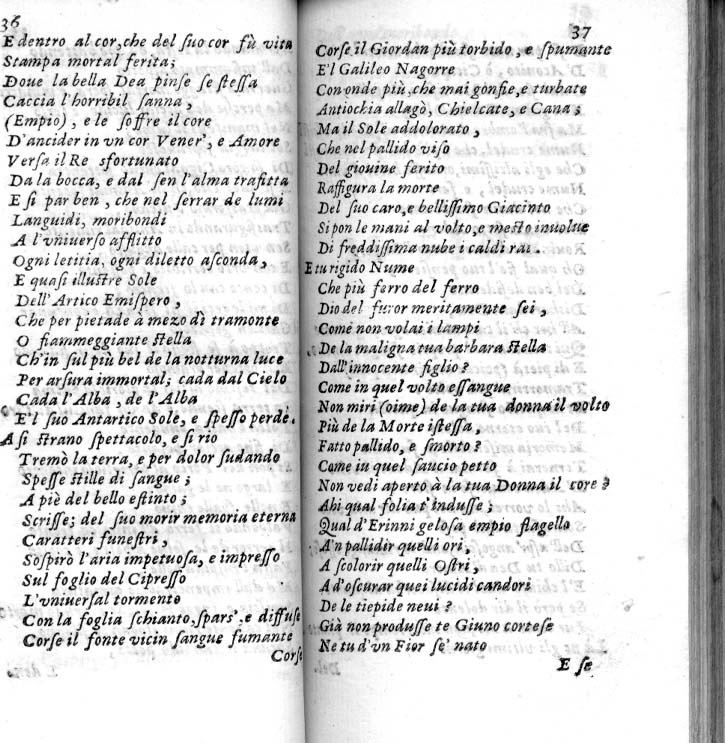 36
E dentro al cor, che del ſuo cor fù vita
Stampa mortal ferita;
Doue la bella Dea pinſe ſe ſteſſa
Caccia l'horribil ſanna,
(Empio), e le ſoffre il core
D'ancider in vn cor Vener', e Amore
Verſa il Re sfortunato
Da la bocca, e dal ſen l'alma trafitta
E ſi par ben, che nel ſerrar de lumi
Languidi, moribondi
A l'vniuerſo afflitto
Ogni letitia, ogni diletto aſconda,
E quaſi illuſtre Sole
Dell'Artico Emiſpero,
Che per pietade à mezo dì tramonte
O fiammeggiante ſtella
Ch'in ſul più bel de la notturna luce
Per arſura immortal; cada dal Cielo
Cada l'Alba, de l'Alba
E'l ſuo Antartico Sole, e ſpeſſo perde.
A ſi ſtrano ſpettacolo, e ſi rio
Tremò la terra, e per dolor ſudando
Speſſe ſtille di ſangue;
A piè del bello eſtinto;
Scriſſe; del ſuo morir memoria eterna
Caratteri funeſtri,
Soſpirò l'aria impetuoſa, e impreſſo
Sul foglio del Cipreſſo
L'vniuerſal tormento
Con la foglia schianto, ſpars', e diffuſe
Corſe il fonte vicin ſangue fumante
Corſe
37
Corſe il Giordan più torbido, e ſpumante
E'l Galileo Nagorre
Con onde più, che mai gonfie, e turbate
Antiochia allagò, Chielcate, e Cana;
Ma il Sole addolorato,
Che nel pallido viſo
Del giouine ferito
Raffigura la morte
Del ſuo caro, e belliſſimo Giacinto
Si pon le mani al volto, e meſto inuolue
Di freddiſſima nube i caldi rai.
E tu rigido Nume
Che più ferro del ferro
Dio del furor meritamente ſei,
Come non volai i lampi
De la maligna tua barbara ſtella
Dall'innocente figlio?
Come in quel volto eſſangue
Non miri (oime) de la tua donna il volto
Più de la Morte iſteſſa,
Fatto pallido, e ſmorto?
Come in quel ſaucio petto
Non vedi aperto à la tua Donna il core?
Ahi qual folia t'induſſe;
Qual d'Erinni geloſa empio flagello
A'n pallidir quelli ori,
A ſcolorir quelli Oſtri,
A d'oſcurar quei lucidi candori
De le tiepide neui?
Già non produſſe te Giuno corteſe
Ne tu d'vn Fior ſe' nato
E ſe